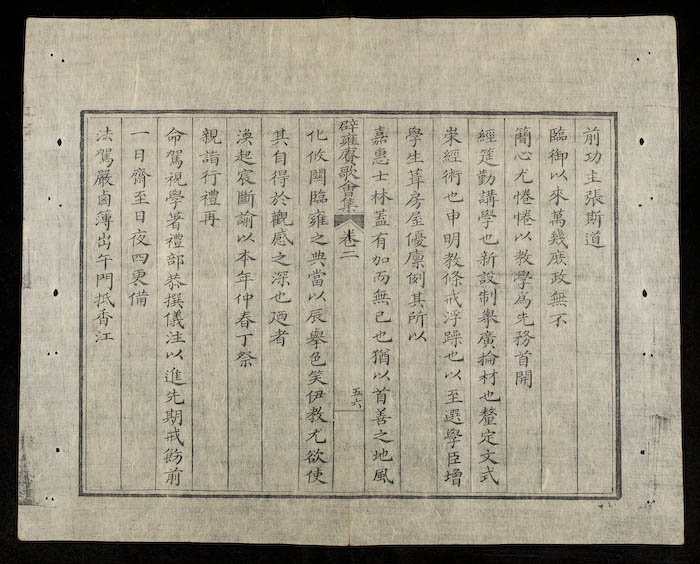 前功主張斯道
臨御以來萬幾庶政無不
簡心尤惓惓以教學爲先務首開
經筵勤講學也新設制舉廣掄材也釐定文式
崇經術也申明教條戒浮躁也以至選學臣增
學生葺房屋優廩例其所以
嘉惠士林蓋有加而無已也猶以首善之地風
辟雍賡歌會集 卷二
五六
化攸關臨雍之典當以辰舉色笑伊教尤欲使
其自得於觀感之深也廼者
渙起宸斷諭以本年仲春丁祭
親詣行禮再
命駕視學著禮部恭撰儀注以進先期戒飭前
一日齊至日夜四更備
法駕嚴鹵簿出午門抵香江